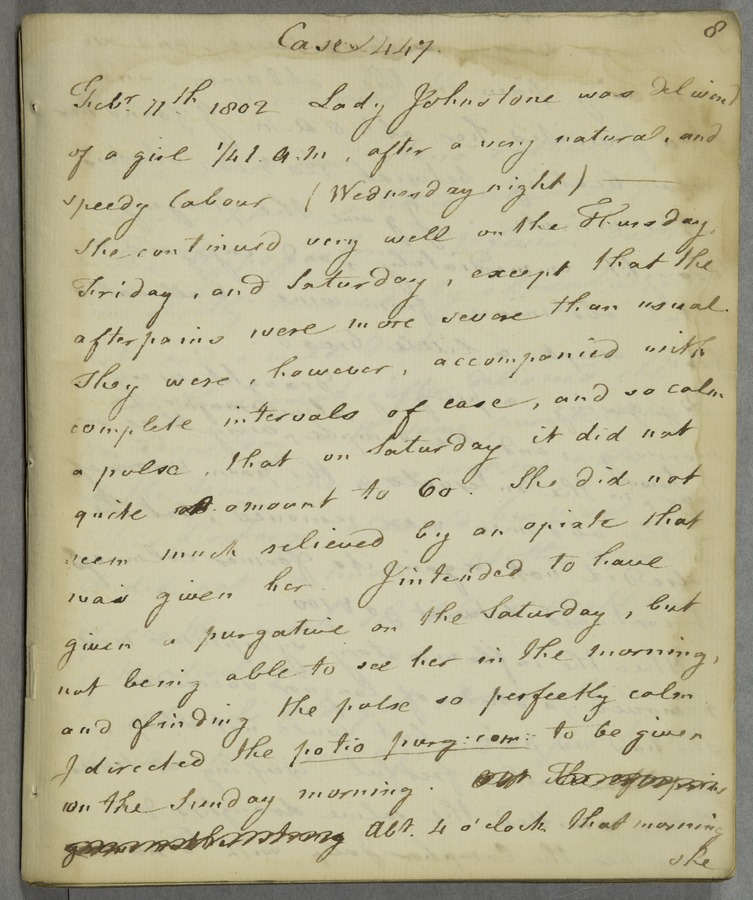 8
Case 447.
Febr. 11th 1802 Lady Johnstone was deliverd
of a girl 1/4 1. a.m, after a very natural, and
speedy Labour (Wednesday night)
She continued very well on the Thursday,
Friday, and Saturday, except that the
afterpains were more severe than usual.
They were, however, accompanied with
complete intervals of ease, and so calm
a pulse, that on Saturday it did not
quite amount to 60. She did not
seem much relieved by an opiate that
was given her. I intended to have
given a purgative on the Saturday, but
not being able to see her in the morning,
and finding the pulse so perfectly calm
I directed the potio purg: com: to be given
on the Sunday morning.
Abt. 4 o'clock that morning
she